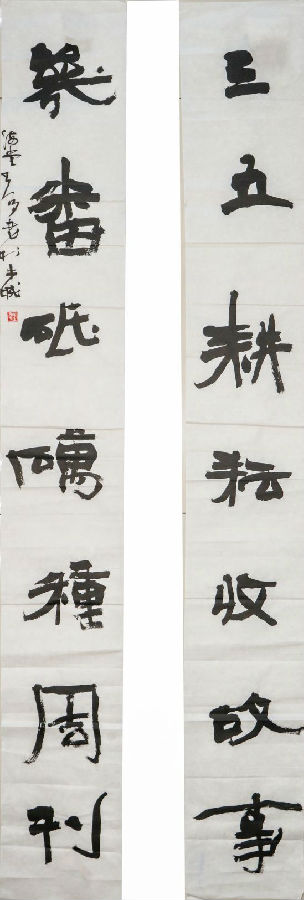 三五耕耘收故事
幾番砥礪種周刊